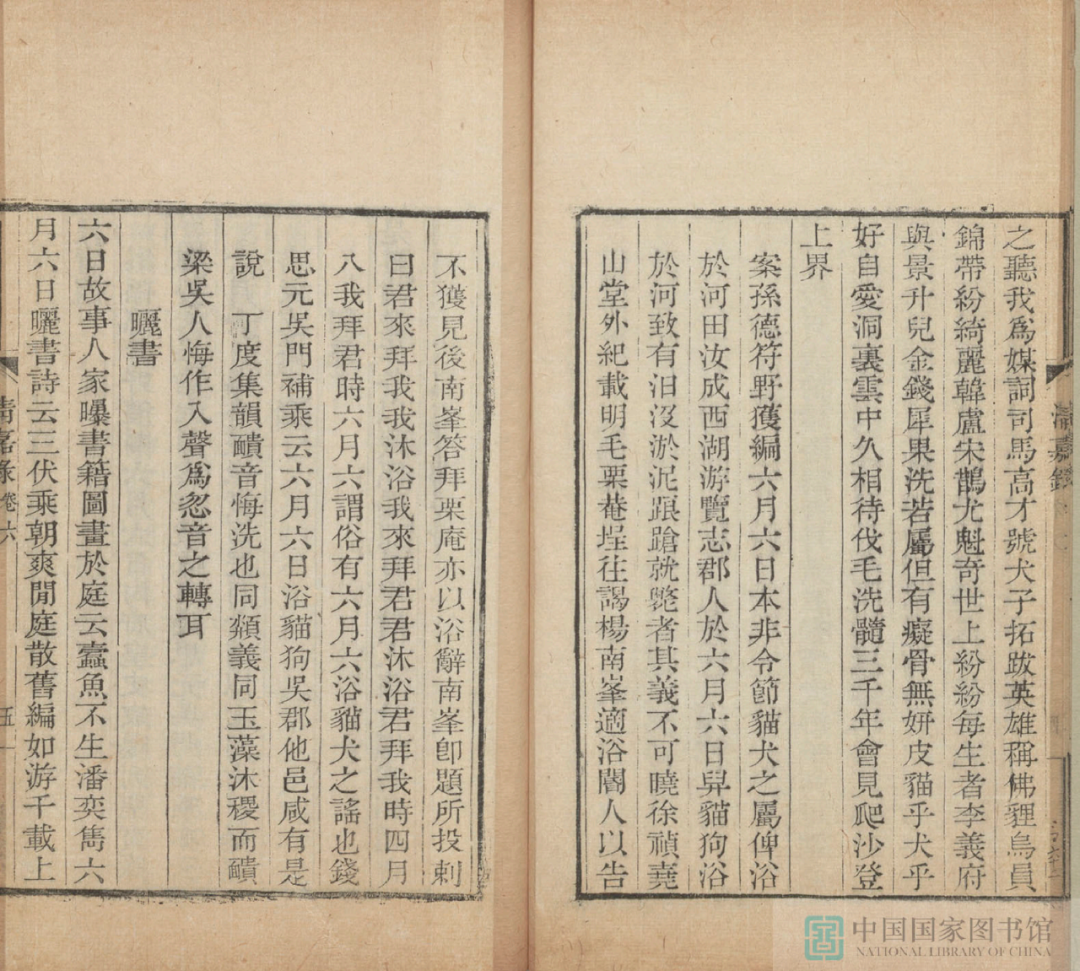 之聽我爲媒詞司馬高才號犬子拓跋英雄稱佛貍烏員
錦帶紛綺麗韓盧宋鵲尤魁奇世上紛紛每生者李義府
與景升兒金錢犀果洗若屬但有癡骨無妍皮貓乎犬乎
好自愛洞裏雲中久相待伐毛洗髓三千年會見爬沙登
上界
案孫德符野獲編六月六日本非令節貓犬之屬俾浴
於河田汝成西湖游覽志郡人於六月六日舁貓狗浴
於河致有汩沒淤泥踉蹌就斃者其義不可曉徐禎
山堂外紀載明毛栗菴埕往謁楊南峯適浴閽人以告
不獲見後南峯答拜栗庵亦以浴辭南峯卽題所投刺
曰君來拜我我沐浴我來拜君君沐浴君拜我時四月
八我拜君時六月六謂俗有六月六浴貓犬之謠也錢
思元吳門補乘云六月六日浴貓狗吳郡他邑咸有是
說 丁度集韻䫭音悔洗也同頮義同玉藻沐稷而䫭
梁吳人悔作入聲爲忽音之轉耳
曬書
六日故事人家曝書籍圖畫於庭云蠹魚不生潘奕雋六
月六日曬書詩云三伏乘朝爽閒庭散舊編如游千載上
清嘉錄 卷六
五
中国国家图书馆
NATIONAL LIBRARY OF CHINA